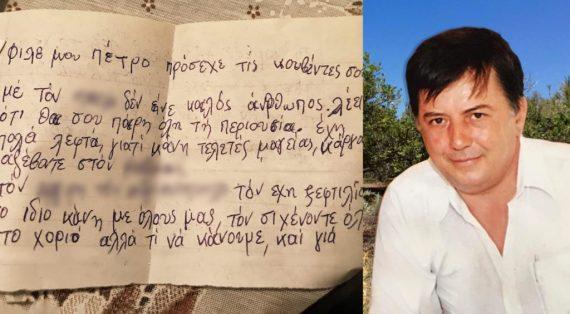 φιλε μου πέτρο πρόσεχε τις κουβέντες σου
με τόν δέν ένε καλός άνθρωπος λέει
ότι θα σου πάρη όλη τή περιουσία. έχη
πολά λεφτά, γιατί κάνη τελετές μαγείας,
στόν
τόν τόν έχη ξεφτιλίσ
το ίδιο κάνη με όλους μας, τόν σιχένοντε όλ
το χοριό αλλά τί νά κάνουμε, και γιά